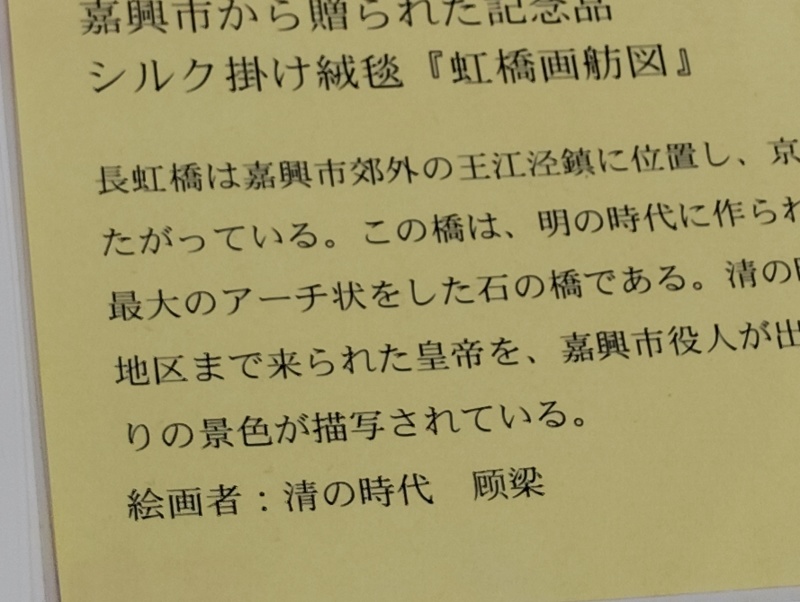 嘉興市から贈られた記念品
シルク掛け絨毯『虹橋画舫図』
長虹橋は嘉興市郊外の王江泾鎮に位置し、京
たがっている。この橋は、明の時代に作られ
最大のアーチ状をした石の橋である。清の
地区まで来られた皇帝を、嘉興市役人が出
りの景色が描写されている。
絵画者：清の時代　顾梁